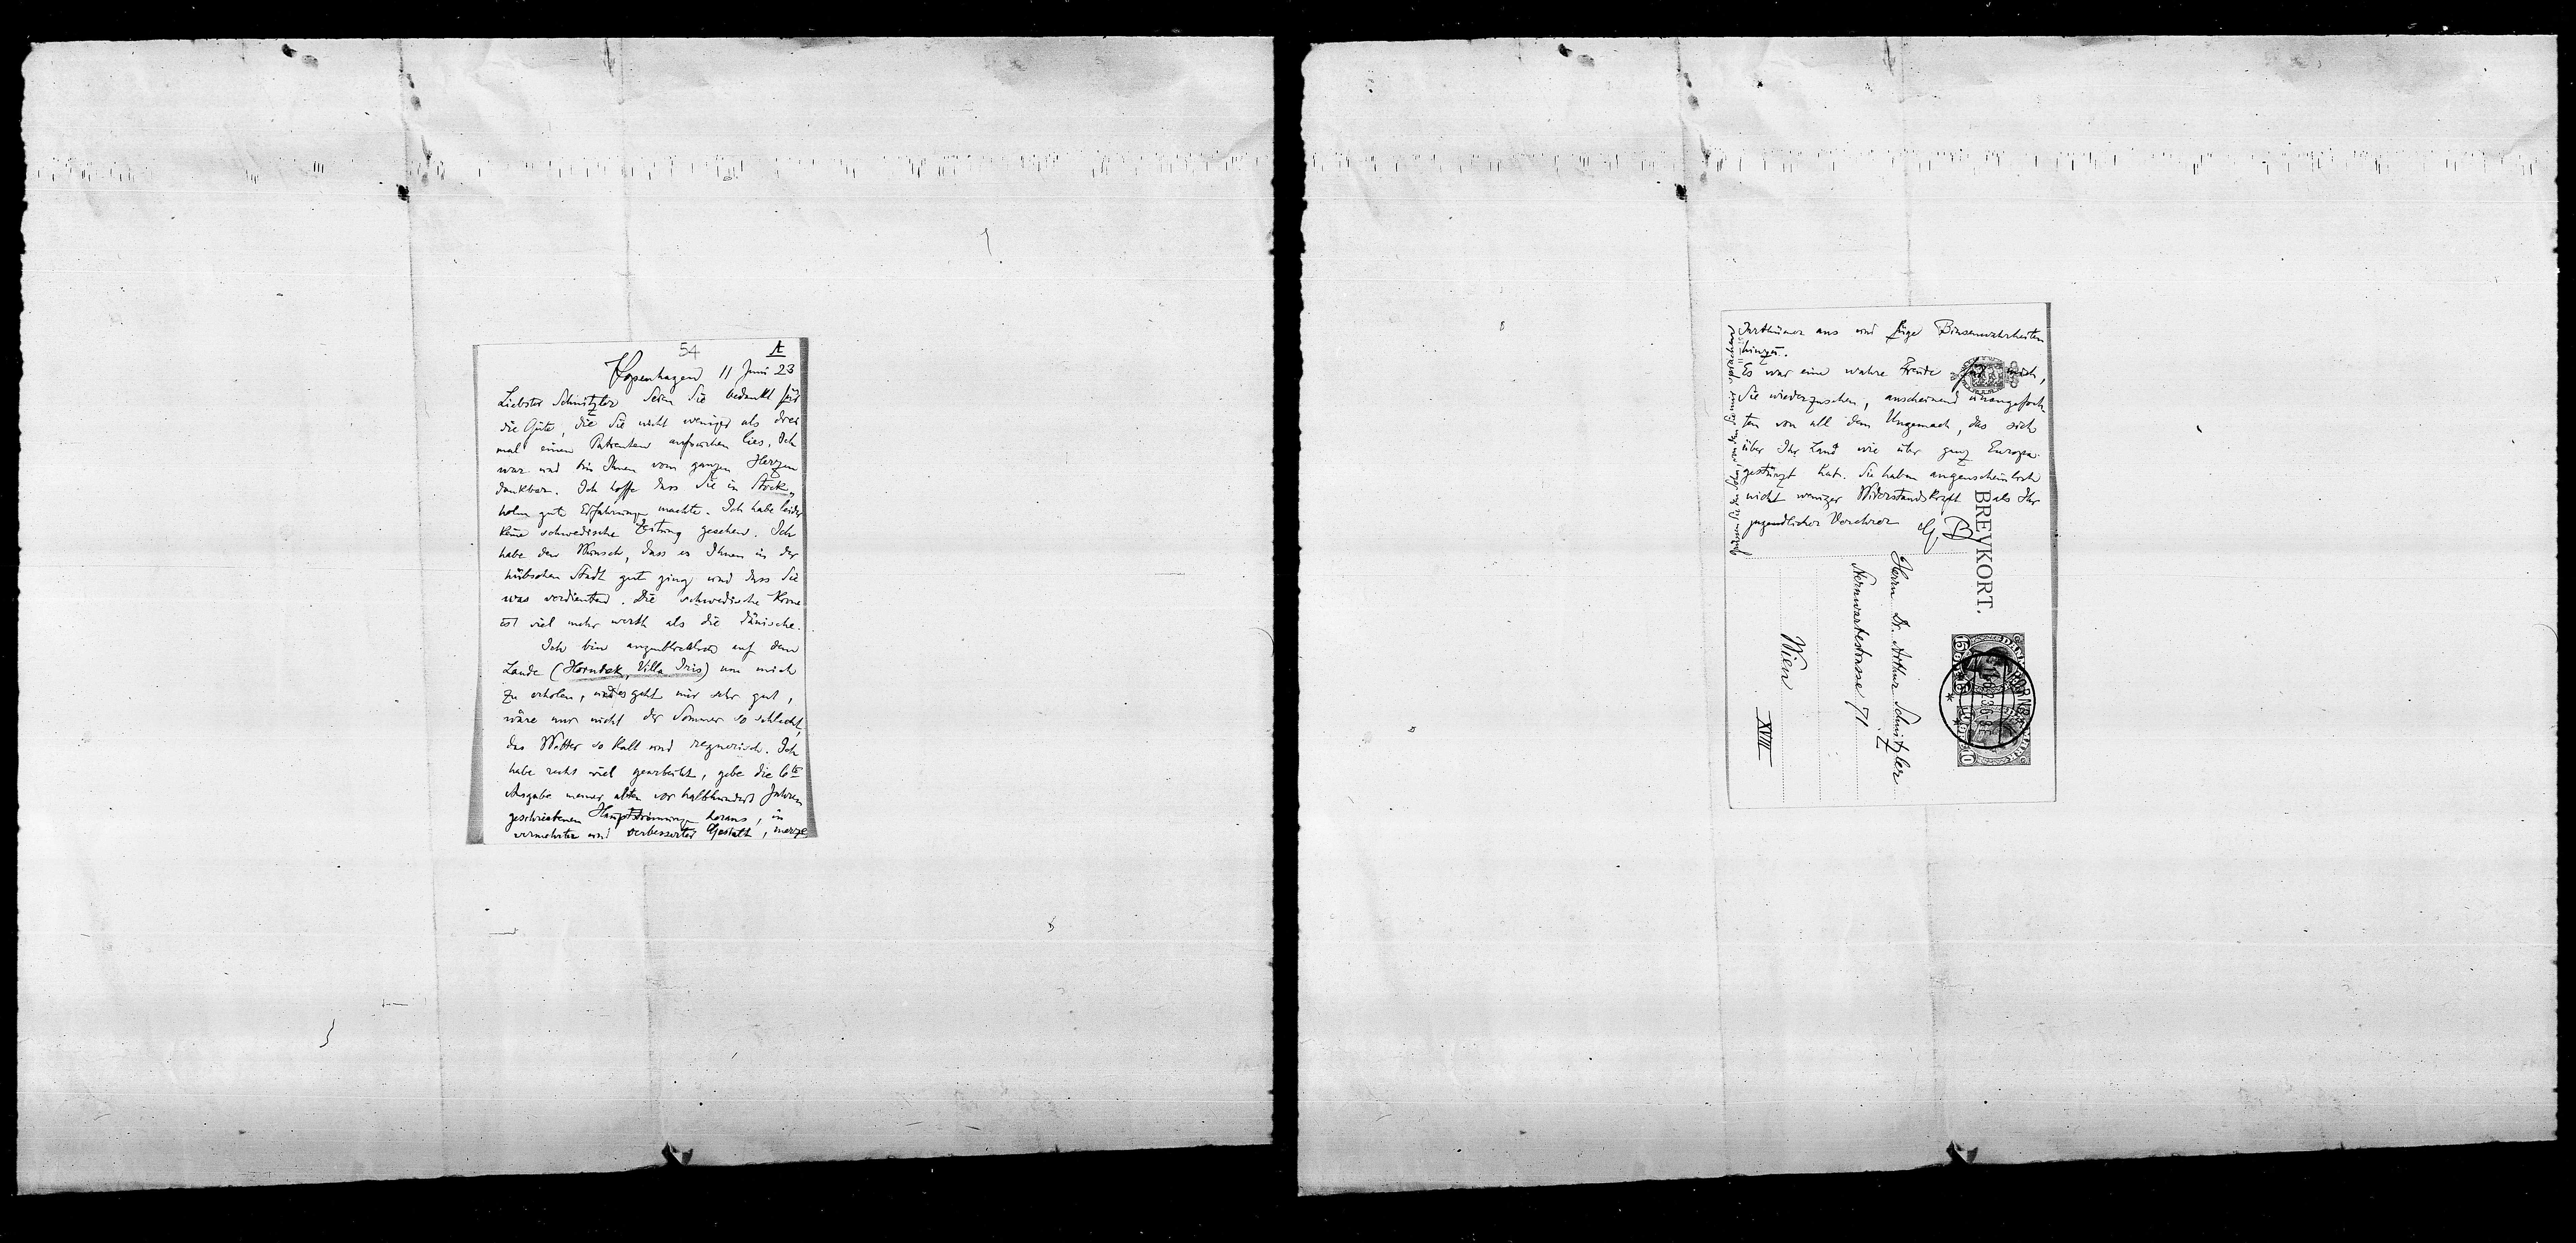 54
A
Kopenhagen 11 Juni 23
Liebster Schnitzler Seien Sie bedankt für
die Güte, die Sie nicht weniger als drei
mal einen Patienten aufsuchen lies. Ich
war und bin Ihnen vom ganzen Herzen
dankbar. Ich hoffe dass Sie in Stock-
holm gute Erfahrungen machte. Ich habe leider
keine schwedische Zeitung gesehen. Ich
habe den Wunsch, dass es Ihnen in der
hübschen Stadt gut ging und dass Sie
was verdienten. Die schwedische Krone
ist viel mehr werth als die dänische.
Ich bin augenblicklich auf dem
Lande (Hornbæk, Villa Iris) um mich
zu erholen, und es geht mir sehr gut,
wäre nur nicht der Sommer so schlecht,
das Wetter so kalt und regnerisch. Ich
habe recht viel gearbeitet, gebe die 6te
Ausgabe meiner alten vor halbhundert Jahren
geschriebenen Hauptströmungen heraus, in
vermehrter und verbesserter Gestalt, merze
Irrthümer aus und füge Binsenwahrheiten
hinzu.
Es war eine wahre Freude für mich,
Sie wiederzusehen, anscheinend unangefoch-
ten von all dem Ungemach, das sich
über Ihr Land wie über ganz Europa
gestürzt hat. Sie haben augenscheinlich
nicht weniger Widerstandskraft als Ihr
jugendlicher Verehrer G. B.
BREVKORT.
Herrn Dr. Arthur Schnitzler
Sternwartestrasse 71
Wien
XVIII